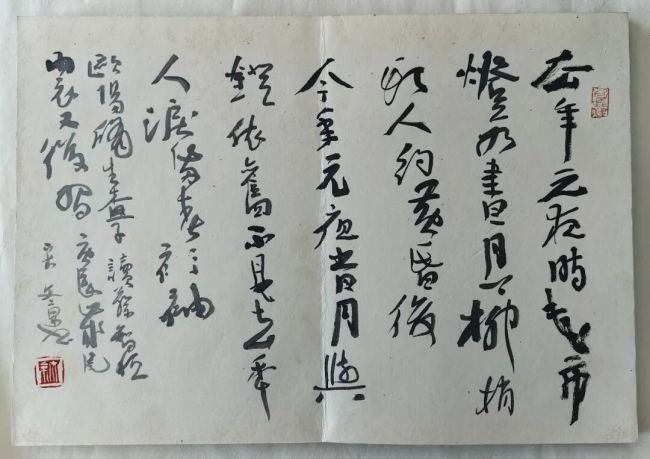 去年元夜時花市
燈如晝月上柳梢
頭人約黃昏後
今年元夜時月與
燈依舊不見去年
人淚滿春衫袖
歐陽脩生查子 讀
又後